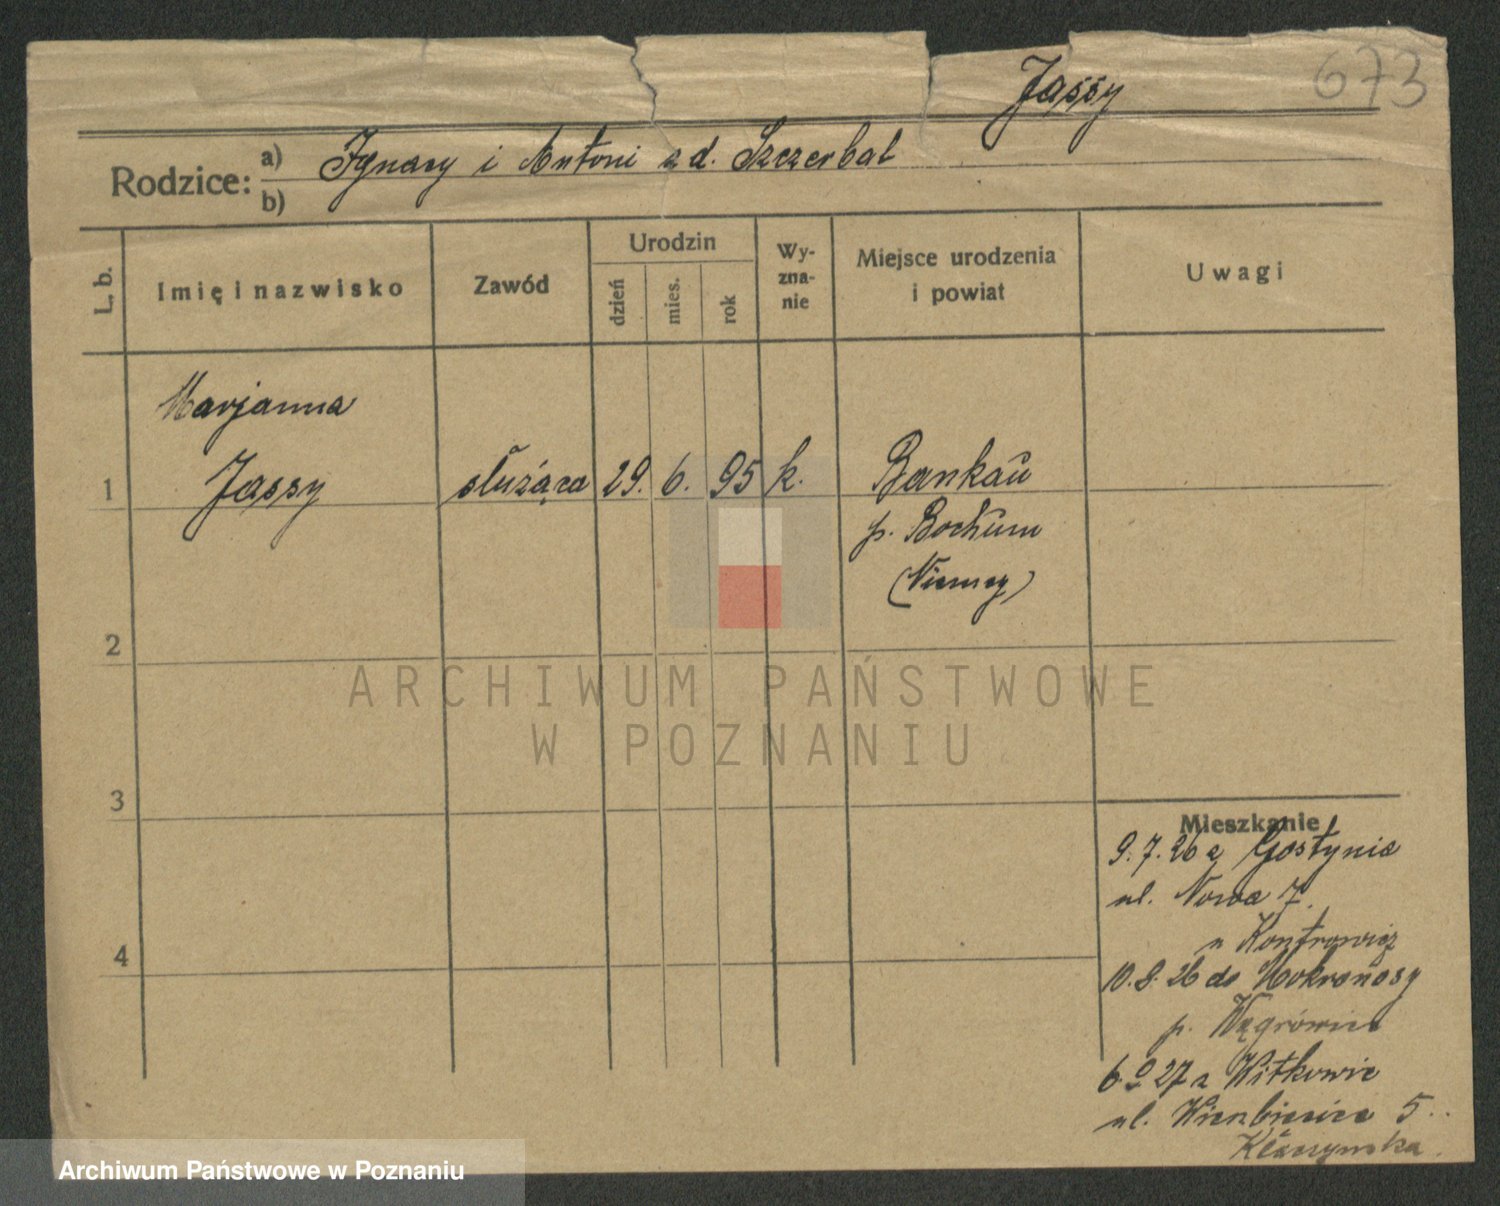 673
Jassy
Rodzice: a) Ignacy i Antoni z d. Szczerbal
b)
L. b. Imię i nazwisko Zawód Urodzin dzień mies. rok Wyznanie Miejsce urodzenia i powiat Uwagi
Marjanna
1 Jassy służąca 29. 6. 95 k. Bankau
p. Bochum
(Niemcy)
2
ARCHIWUM PAŃSTWOWE
W POZNANIU
3
Mieszkanie
9. 7. 26 z Gostynia
ul. Nowa 7.
u
10. 8. 26 do Mokronosy
p. Wągrówiec
6. 9 27 z Witkowic
ul. 5.
4
Archiwum Państwowe w Poznaniu